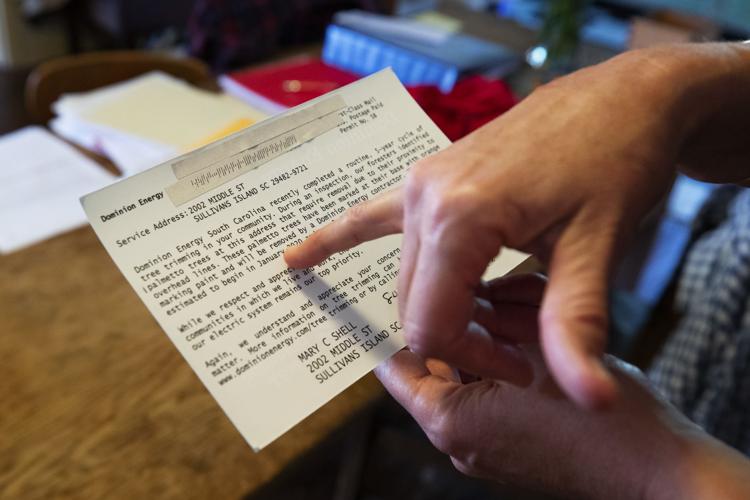 st-Class Mail
. Postage Paid
Permit No. 58
Dominion Energy
Service Address: 2002 MIDDLE ST
SULLIVANS ISLAND SC 29482-9721
Dominion Energy South Carolina recently completed a routine, 5-year cycle of
tree trimming in your community. During an inspection, our foresters identified
palmetto trees at this address that require removal due to their proximity to
overhead lines. These palmetto trees have been marked at their base with orange
marking paint and will be removed by a Dominion Energy contractor
estimated to begin in January 2020
While we respect and appreciate your concern
communities in which we live and work, th
our electric system remains our top priority.
Again, we understand and appreciate your concern
matter. More information on tree trimming can b
www.dominionenergy.com/tree trimming or by callin
MARY C SHELL
2002 MIDDLE ST
SULLIVANS ISLAND SC